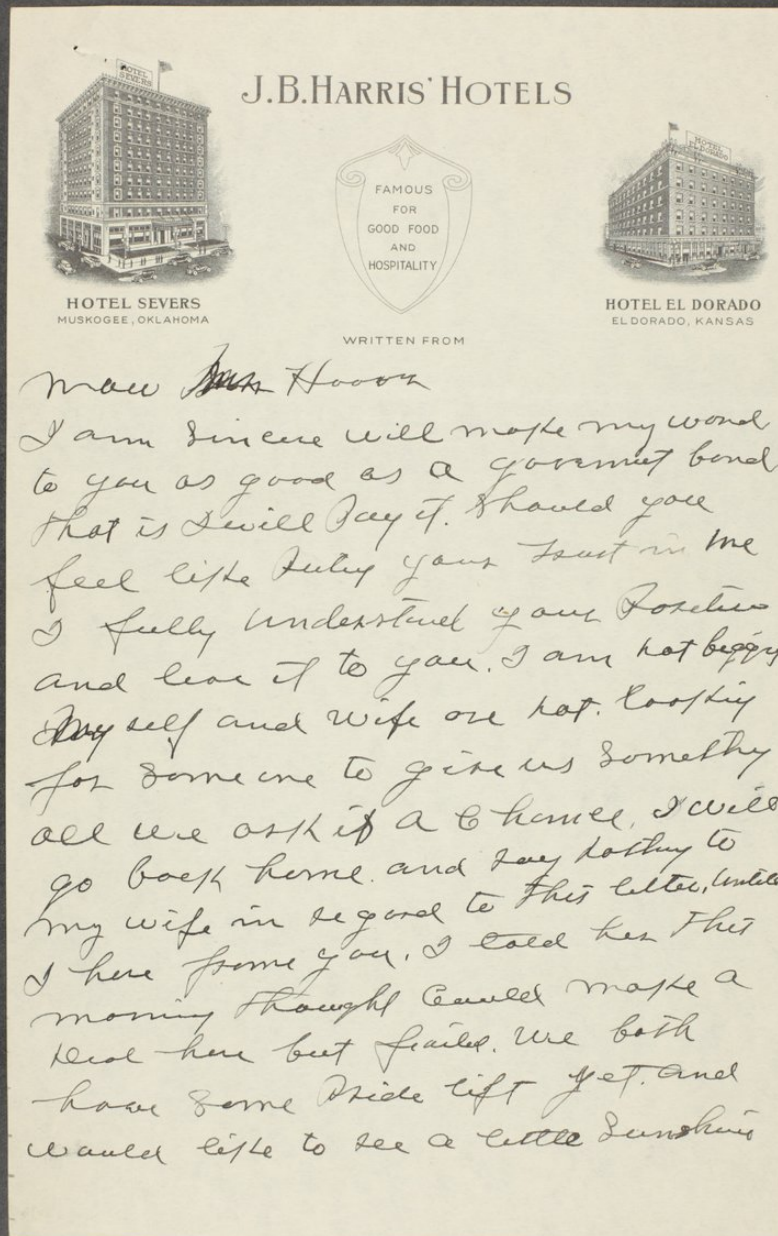 HOTEL
SEVERS
J.B. HARRIS' HOTELS
HOTEL
EL DORADO
FAMOUS
FOR
GOOD FOOD
AND
HOSPITALITY
HOTEL SEVERS
MUSKOGEE, OKLAHOMA
HOTEL EL DORADO
ELDORADO, KANSAS
WRITTEN FROM
Hoover
I am sincere will make my word
to you as good as a goverment bond
that is I will Pay it. Should you
feel like Puting your trust in me
I fully understand your Position
and leve it to you. I am not beging
My self and wife are not. looking
for some one to give us somethg
all we ask if a Chance. I will
go back home. and say nothing to
my wife in regard to this letter, until
I here frome you. I told her this
morning thought Could make a
deal here but failed. We both
have some Pride lift yet. and
would like to see a little Sunshine